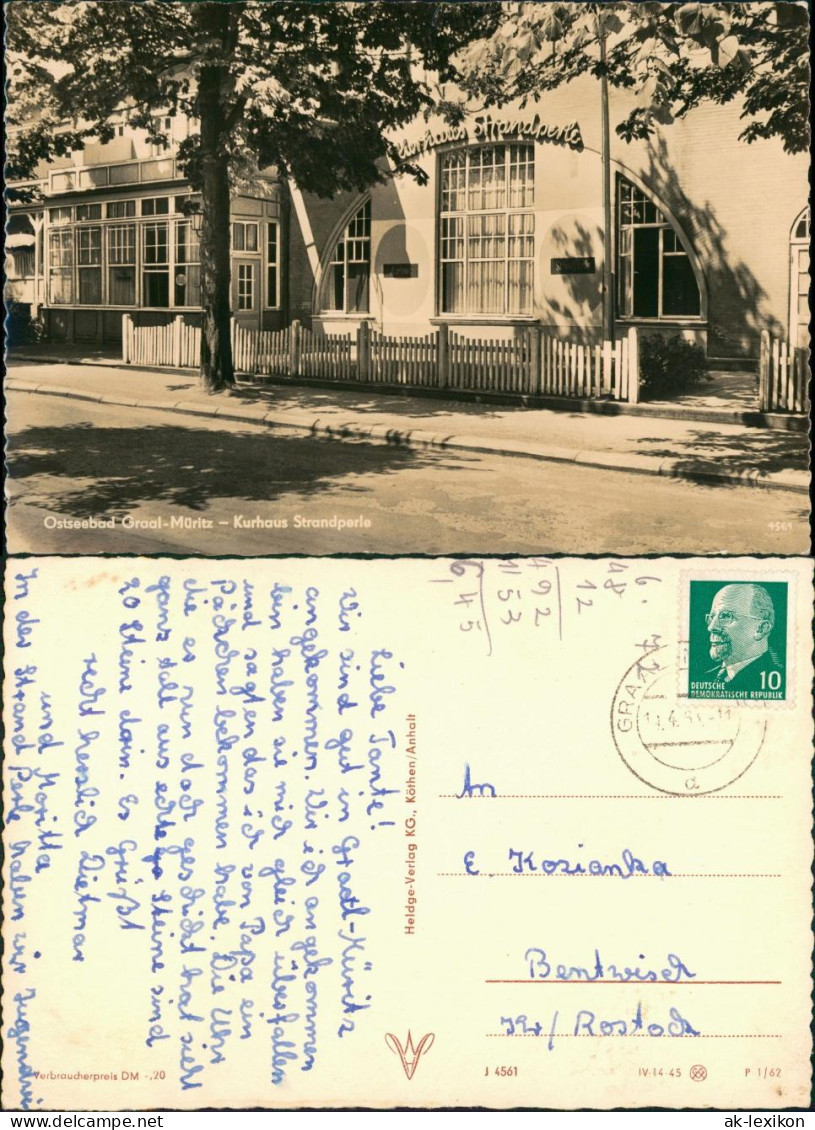 Kurhaus Strandperle
Ostseebad Graal-Müritz – Kurhaus Strandperle
4561
Liebe Tante!
Wir sind gut in Graal-Müritz
angekommen. Wie ich angekommen
bin haben sie mich gleich überfallen
und sagten das ich von Papa ein
Päckchen bekommen habe. Die Uhr
die er nun doch geschickt hat sieht
ganz toll aus echte Steine sind
20 Steine drin. Es Grüßt
recht herzlich Dietmar
und Moritta
In der Strand Perle haben wir
Heldge-Verlag KG., Köthen/Anhalt
Verbraucherpreis DM -,20
6.
12
48
492
153
6,45
10
DEUTSCHE
DEMOKRATISCHE REPUBLIK
GRAAL
a
An
E. Kozianka
Bentwisch
Kr/Rostock
J 4561
IV-14-45
P 1/62
ak-lexikon
ak-lexikon.com